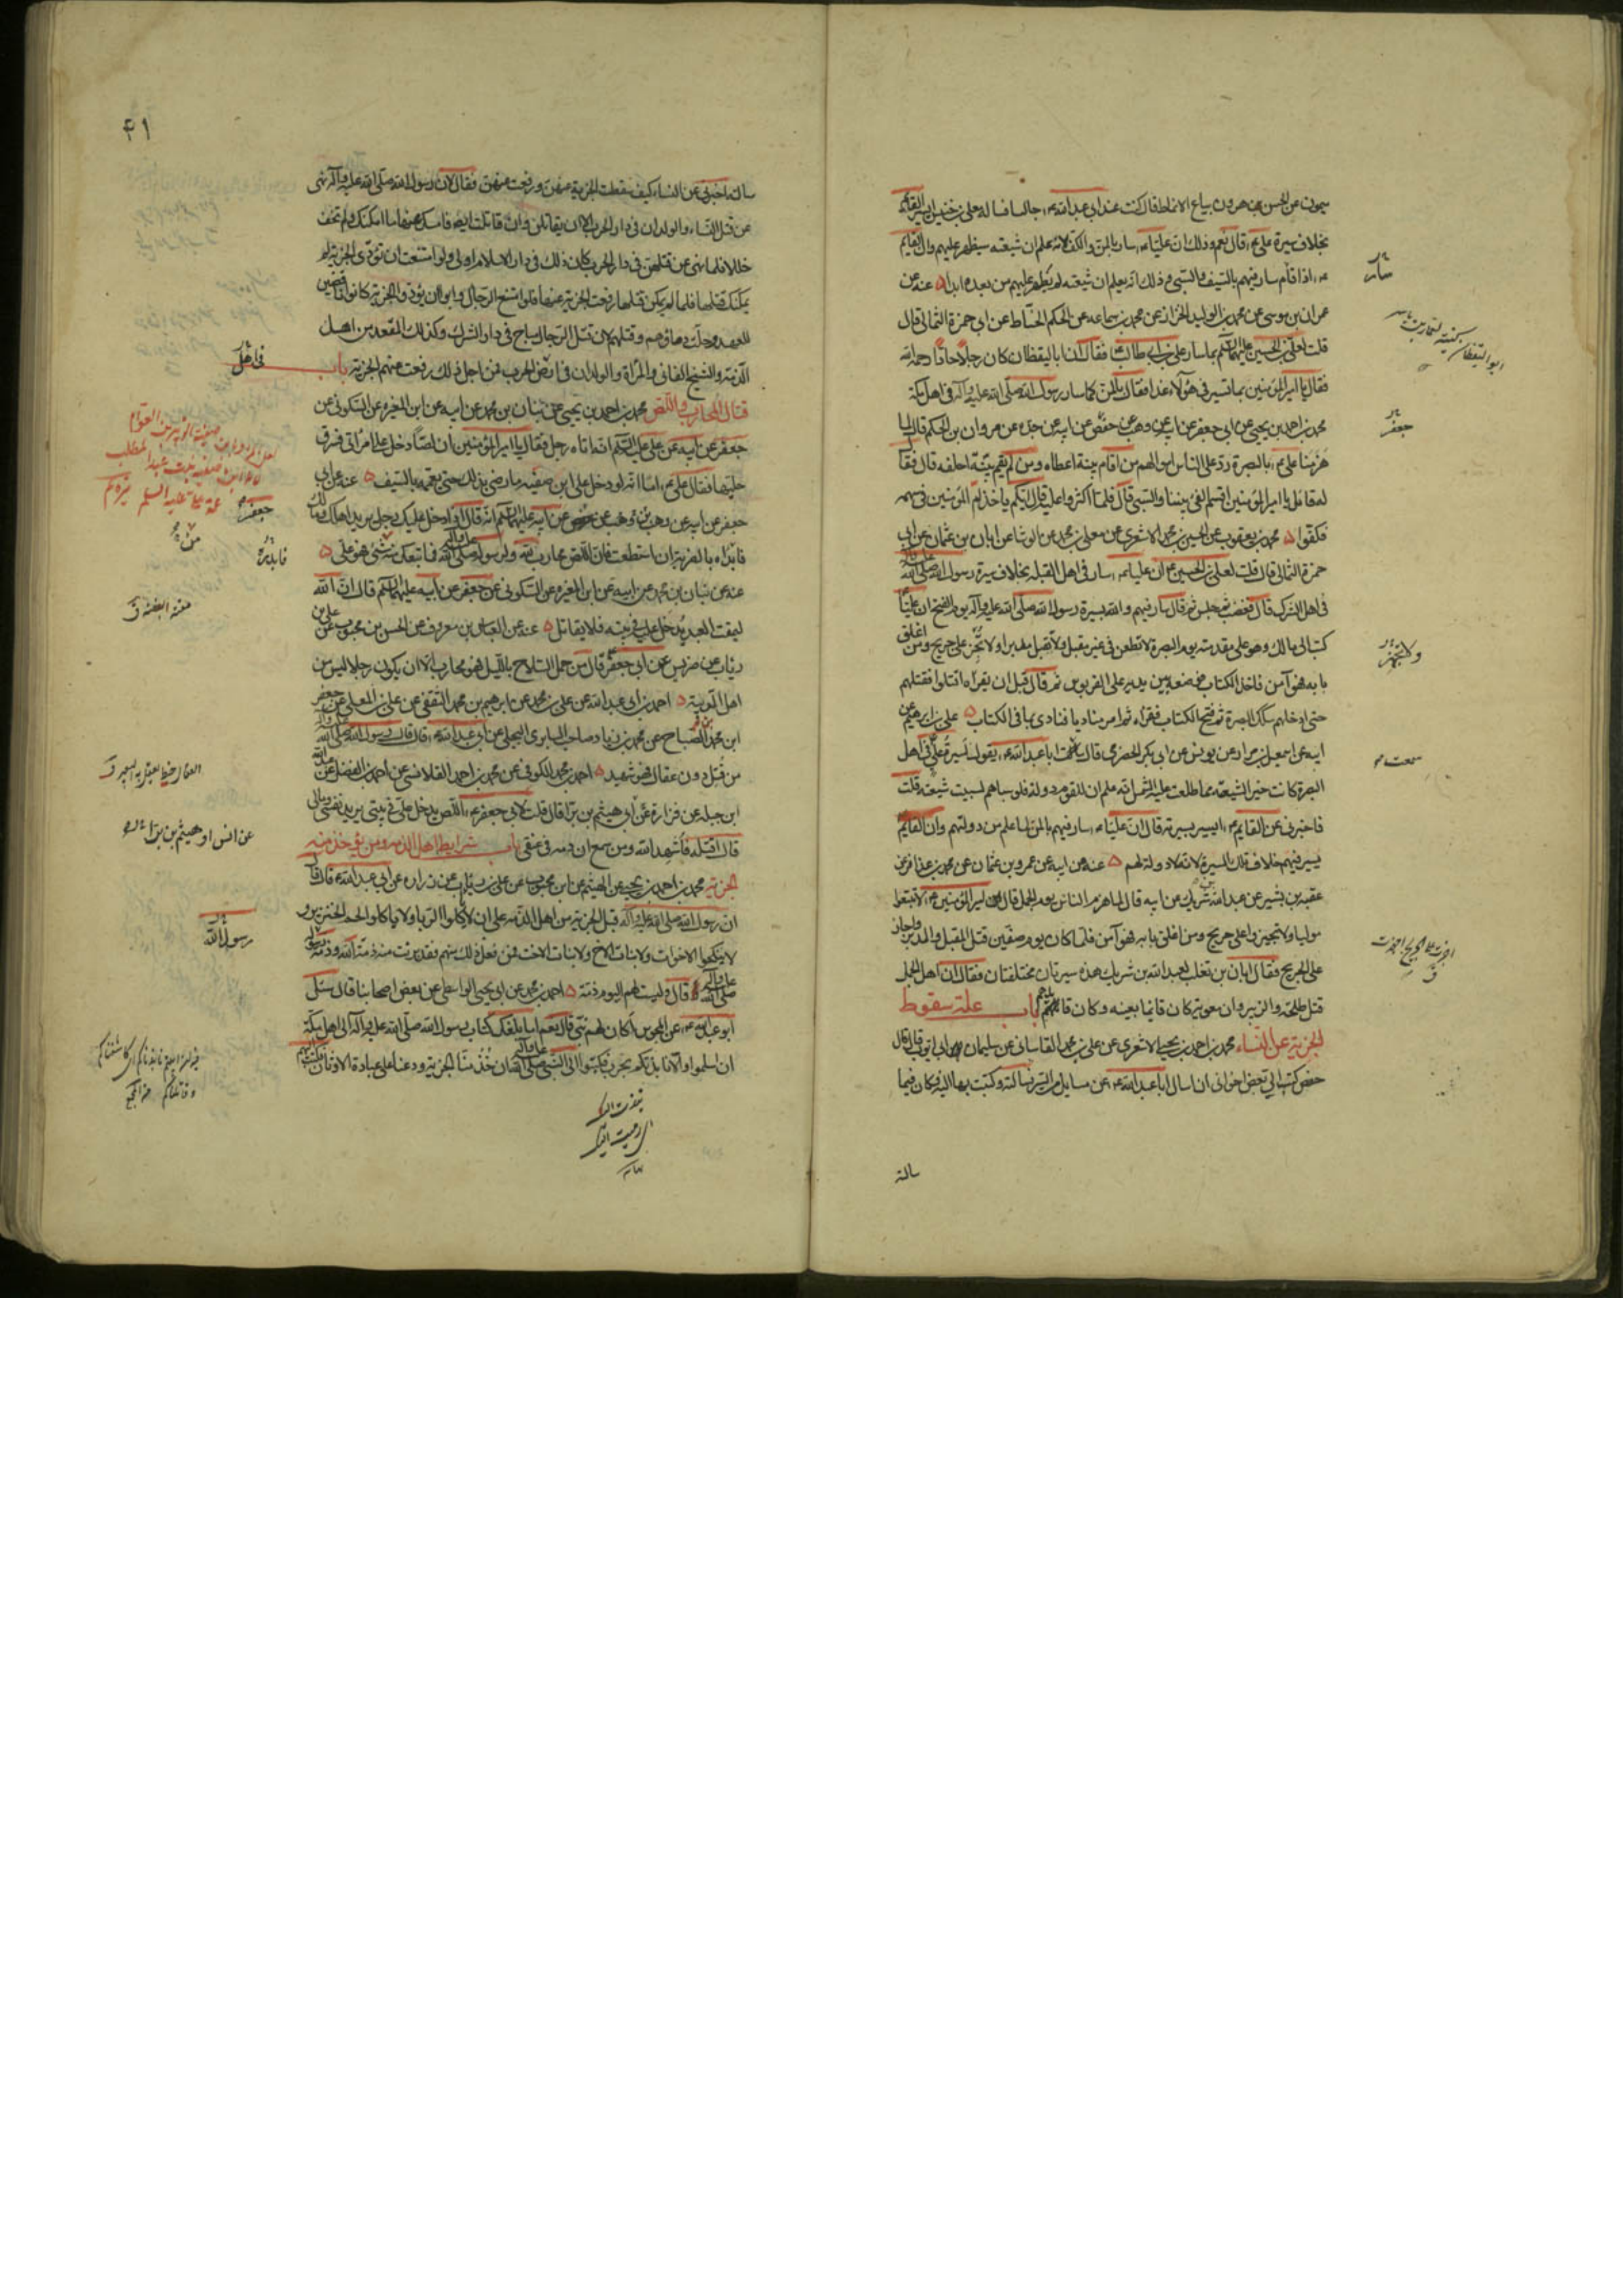 ميمون عن الحسن بن هرون بياع الانماط قال كنت عند ابي عبد الله ع جالسا فساله معلى بن خنيس ايسير القائم
بخلاف سيرة علي ع قال نعم وذلك ان عليا ع سار بالمن والكف لانه علم ان شيعته سيظهر عليهم وان القايم
ع اذا قام سار فيهم بالسيف والسبي وذلك انه يعلم ان شيعته لم يظهر عليهم من بعده ابدا ه عنه عن
عمران بن موسى عن محمد بن الوليد الخزاز عن محمد بن سماعه عن الحكم الحناط عن ابي حمزة الثمالي قال
قلت لعلي بن الحسين عليهما السلم بما سار علي بن ابي طالب ع فقال ان ابا اليقظان كان رجلا حادا رحمه الله
فقال يا امير المؤمنين بما تسير في هؤلاء غدا فقال بالمن كما سار رسول الله صلى الله عليه وآله في اهل مكة
محمد بن احمد بن يحيى عن ابي جعفر عن ابيه عن وهب عن حفص عن ابيه عن جده عن مروان بن الحكم قال لما
هزمنا علي ع بالبصرة رد على الناس اموالهم من اقام بينة اعطاه ومن لم يقم بينة احلفه قال فقال
له قائل يا امير المؤمنين اقسم الفئ بيننا والسبي قال فلما اكثروا عليه قال ايكم ياخذ ام المؤمنين في سهمه
فكفوا ه محمد بن يعقوب عن الحسين بن محمد الاشعري عن معلى بن محمد عن الوشا عن ابان بن عثمان عن ابي
حمزة الثمالي قال قلت لعلي بن الحسين ع ان عليا ع سار في اهل القبلة بخلاف سيرة رسول الله صلى الله عليه وآله
في اهل الشرك قال فغضب ثم جلس ثم قال سار فيهم والله بسيرة رسول الله صلى الله عليه وآله يوم الفتح ان عليا
كتب الى مالك وهو على مقدمته يوم البصرة لا تطعن في غير مقبل ولا تقتل مدبرا ولا تجهز على جريح ومن اغلق
بابه فهو آمن فاخذ الكتاب فوضعه بين يديه على القربوس ثم قال قبل ان يقراه اقتلوا فقتلهم
حتى ادخلهم سكك البصرة ثم فتح الكتاب فقراه ثم امر مناديا فنادى بما في الكتاب ه علي بن ابرهيم عن
ابيه عن اسمعيل بن مرار عن يونس عن ابي بكر الحضرمي قال سمعت ابا عبد الله ع يقول لسيرة علي في اهل
البصرة كانت خيرا لشيعته مما طلعت عليه الشمس انه علم ان للقوم دولة فلو سباهم لسبيت شيعته قلت
فاخبرني عن القايم ع ايسير بسيرته قال ان عليا ع سار فيهم بالمن لما علم من دولتهم وان القايم
يسير فيهم خلاف تلك السيرة لانه لا دولة لهم ه عنه عن ابيه عن عمرو بن عثمان عن محمد بن عذافر عن
عقبه بن بشير عن عبد الله بن شريك عن ابيه قال لما هزم الناس يوم الجمل قال امير المؤمنين ع لا تتبعوا
موليا ولا تجيزوا على جريح ومن اغلق بابه فهو آمن فلما كان يوم صفين قتل المقبل والمدبر واجاز
على الجريح فقال ابان بن تغلب لعبد الله بن شريك هذه سيرتان مختلفتان فقال ان اهل الجمل
قتل طلحة والزبير وان معوية كان قايما بعينه وكان قائدهم باب علة سقوط
الجزية عن النساء محمد بن احمد بن يحيى الاشعري عن علي بن محمد القاساني عن سليمان ابي ايوب قال قال
حفص كتب الي بعض اخواني ان اسال ابا عبد الله ع عن مسايل من السير فسالته وكتبت بها اليه فكان فيما
سالته
سار
جعفر
ولا تجهز
سمعت
٤١
سالته اخبرني عن النساء كيف سقطت الجزية عنهن ورفعت عنهن فقال لان رسول الله صلى الله عليه وآله نهى
عن قتل النساء والولدان في دار الحرب الا ان يقاتلن وان قاتلت ايضا فامسك عنها ما امكنك ولم تخف
خللا فلما نهى عن قتلهن في دار الحرب كان ذلك في دار الاسلام اولى ولو امتنعت ان تؤدي الجزية لم
يمكنك قتلها فلما لم يمكن قتلها رفعت الجزية عنها فلو امتنع الرجال وابوا ان يؤدوا الجزية كانوا ناقضين
للعهد وحلت دماؤهم وقتلهم لان قتل الرجال مباح في دار الشرك وكذلك المقعد من اهل
الذمة والشيخ الفاني والمرأة والولدان في ارض الحرب فمن اجل ذلك رفعت عنهم الجزية باب
قتال المحارب واللص محمد بن احمد بن يحيى عن بنان بن محمد عن ابيه عن ابن المغيره عن السكوني عن
جعفر عن ابيه عن علي عليه السلم انه اتاه رجل فقال يا امير المؤمنين ان لصا دخل على امراتي فسرق
حليتها فقال علي ع اما انه لو دخل على ابن صفيه ما رضي بذلك حتى يعمه بالسيف ه عنه عن ابي
جعفر عن ابيه عن وهب عن جعفر عن ابيه عليهما السلم انه قال اذا دخل عليك رجل يريد اهلك ومالك
فابدأه بالضربة ان استطعت فان اللص محارب لله ولرسوله صلى الله عليه وآله فما تبعك منه شئ فهو علي ه
عنه عن بنان بن محمد عن ابيه عن ابن المغيره عن السكوني عن جعفر عن ابيه عليهما السلم قال ان الله
ليمقت العبد يدخل عليه في بيته فلا يقاتل ه عنه عن العباس بن معروف عن الحسن بن محبوب عن علي بن
رئاب عن ضريس عن ابي جعفر قال من حمل السلاح بالليل فهو محارب الا ان يكون رجلا ليس من
اهل الريبة ه احمد بن ابي عبد الله عن علي بن محمد عن ابرهيم بن محمد الثقفي عن علي بن المعلى عن جعفر
ابن محمد بن الصباح عن محمد بن زياد صاحب السابري البجلي عن ابي عبد الله ع قال قال رسول الله صلى الله عليه وآله
من قتل دون عقال فهو شهيد ه احمد بن محمد الكوفي عن محمد بن احمد القلانسي عن احمد بن الفضل عن عبد الله
ابن جبلة عن فزارة عن ابي هيثم بن برا قال قلت لابي جعفر ع اللص يدخل علي في بيتي يريد نفسي ومالي
قال اقتله فاشهد الله ومن سمع ان دمه في عنقي باب شرايط اهل الذمه ومن يؤخذ منه
الجزية محمد بن احمد بن يحيى عن الهيثم عن ابن محبوب عن علي بن رئاب عن زراره عن ابي عبد الله ع قال قال
ان رسول الله صلى الله عليه وآله قبل الجزية من اهل الذمه على ان لا ياكلوا الربا ولا ياكلوا لحم الخنزير و
لا ينكحوا الاخوات ولا بنات الاخ ولا بنات الاخت فمن فعل ذلك منهم فقد برئت منه ذمة الله وذمة رسوله
صلى الله عليه وآله قال وليست لهم اليوم ذمة ه احمد بن محمد عن ابي يحيى الواسطي عن بعض اصحابنا قال سئل
ابو عبد الله ع عن المجوس اكان لهم نبي قال نعم اما بلغك كتاب رسول الله صلى الله عليه وآله الى اهل مكة
ان اسلموا والا نابذتكم بحرب فكتبوا الى النبي صلى الله عليه وآله ان خذ منا الجزية ودعنا على عبادة الاوثان فكتب اليهم
في اهل
جعفر
فابدئه
عن انس او هيثم بن برا
رسول الله